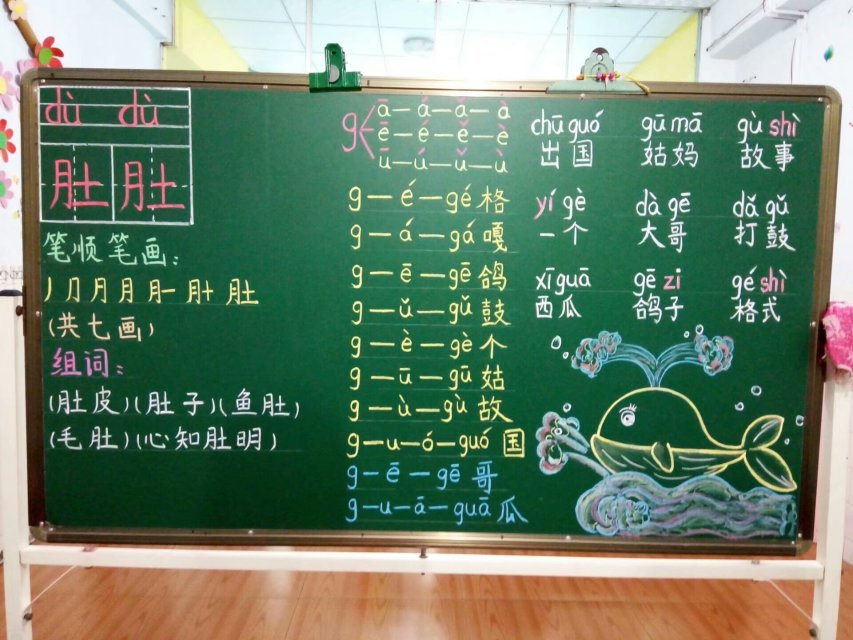 dù dù
肚 肚
笔顺笔画：
丿 ⺆ 月 月 肚
(共七画)
组词：
(肚皮)(肚子)(鱼肚)
(毛肚)(心知肚明)
g
ā—á—ǎ—à
ē—é—ě—è
ū—ú—ǔ—ù
g—é—gé 格
g—á—gá 嘎
g—ē—gē 鸽
g—ǔ—gǔ 鼓
g—è—gè 个
g—ū—gū 姑
g—ù—gù 故
g—u—ó—guó 国
g—ē—gē 哥
g—u—ā—guā 瓜
chū guó gū mā gù shì
出国 姑妈 故事
yí gè dà gē dǎ gǔ
一个 大哥 打鼓
xī guā gē zi gé shì
西瓜 鸽子 格式